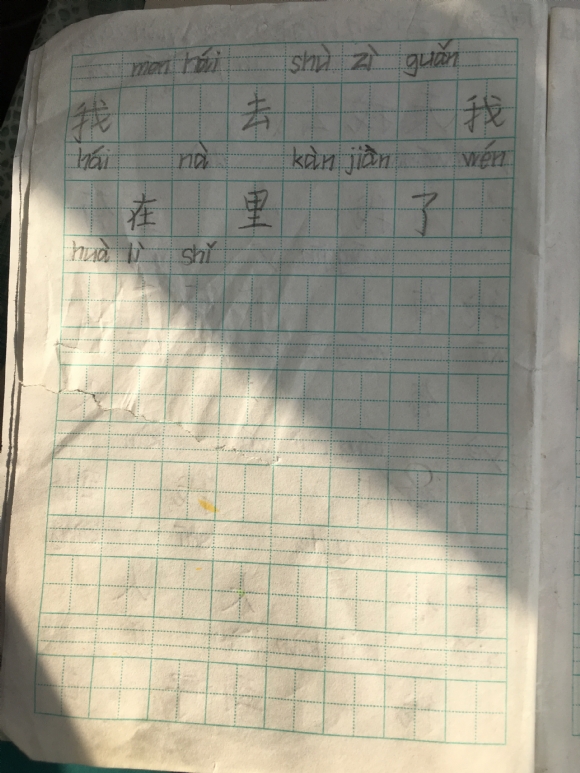 men hái shù zì guǎn
我 去 我
hái nà kàn jiàn wén
在 里 了
huà lì shǐ